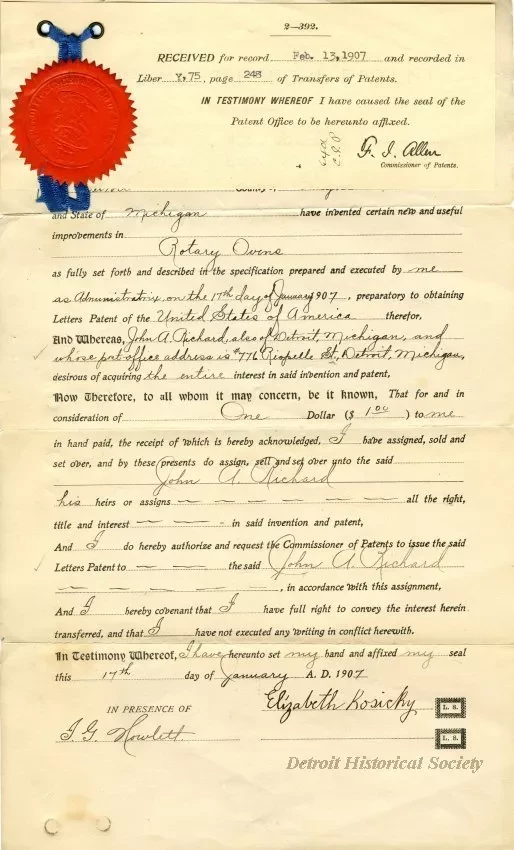 2—392.
RECEIVED for record Feb. 13, 1907 and recorded in
Liber Y, 75, page 248 of Transfers of Patents.
IN TESTIMONY WHEREOF I have caused the seal of the
Patent Office to be hereunto affixed.
F. I. Allen
Commissioner of Patents.
and State of Michigan have invented certain new and useful
improvements in
Rotary Ovens
as fully set forth and described in the specification prepared and executed by me
as Administratrix, on the 17th day of January 1907, preparatory to obtaining
Letters Patent of the United States of America therefor,
And Whereas, John A. Richard, also of Detroit, Michigan, and
whose post office address is #776 Riopelle St., Detroit, Michigan,
desirous of acquiring the entire interest in said invention and patent,
Now Therefore, to all whom it may concern, be it known, That for and in
consideration of One Dollar ($ 1.00 ) to me
in hand paid, the receipt of which is hereby acknowledged, I have assigned, sold and
set over, and by these presents do assign, sell and set over unto the said
John A. Richard
his heirs or assigns — — — — — — all the right,
title and interest — — — - in said invention and patent,
And I do hereby authorize and request the Commissioner of Patents to issue the said
Letters Patent to — — — the said John A. Richard
— — — — — —, in accordance with this assignment,
And I hereby covenant that I have full right to convey the interest herein
transferred, and that I have not executed any writing in conflict herewith.
In Testimony Whereof, I have hereunto set my hand and affixed my seal
this 17th day of January A. D. 1907
IN PRESENCE OF
Elizabeth Kosicky L. S.
I. G. Howlett L. S.
Detroit Historical Society